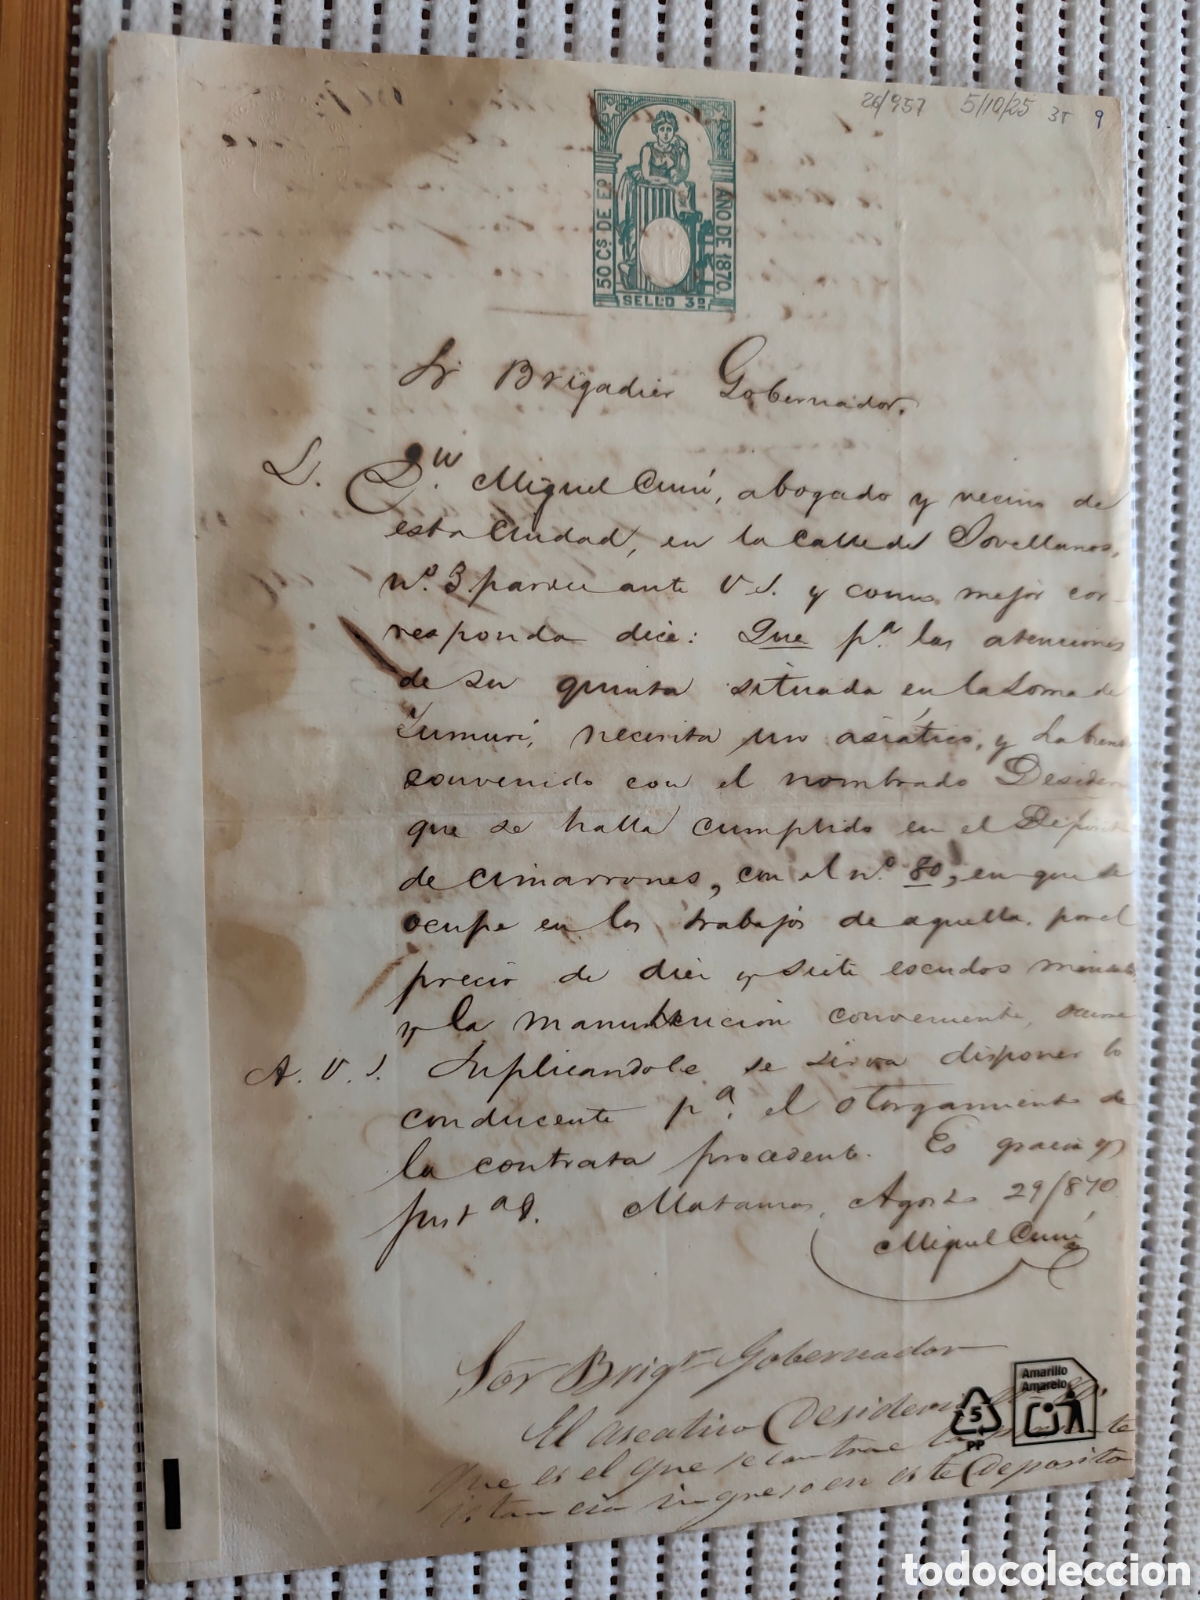 26/957 5/10/25 3T 9
50 Cs DE Eo
AÑO DE 1870.
SELLO 3º
Sr Brigadier Gobernador.
L. Dn. Miguel Cuní, abogado y vecino de
esta Ciudad, en la calle de Jovellanos,
nº. 3 parece ante V. S. y como mejor cor-
responda dice: Que pª. las atenciones
de su quinta situada en la Loma de
Yumurí, necesita un asiático, y habiendo
convenido con el nombrado Desider
que se halla cumplido en el Depósito
de cimarrones, con el nº. 80, en que se
ocupe en los trabajos de aquella por el
precio de diez y siete escudos
y la manutencion conveniente, ocurre
A. V. S. Suplicandole se sirva disponer lo
conducente pª. el otorgamiento de
la contrata procedente. Es gracia y
justª. Matanzas, Agosto 29/870
Miguel Cuní
Sor Brigr Gobernador
El aseatico Desiderio
que es el que se contrae la
istancia ingreso en este Deposito
Amarillo
Amarelo
5
PP
todocoleccion